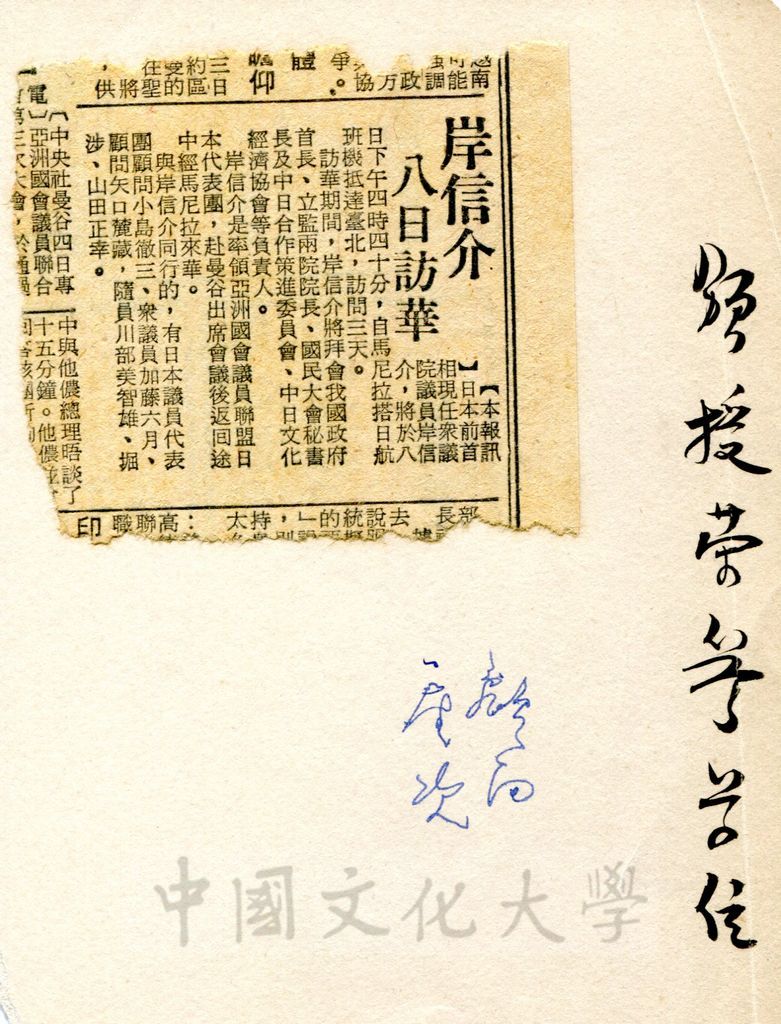 頒授荣誉学位
岸信介
八日訪華
【本報訊
】日本前首
相現任衆議
院議員岸信
介，將於八
日下午四時四十分，自馬尼拉搭日航
班機抵達臺北，訪問三天。
訪華期間，岸信介將拜會我國政府
首長、立監兩院院長、國民大會秘書
長及中日合作策進委員會、中日文化
經濟協會等負責人。
岸信介是率領亞洲國會議員聯盟日
本代表團，赴曼谷出席會議後返囘途
中經馬尼拉來華。
與岸信介同行的，有日本議員代表
團顧問小島徹三、衆議員加藤六月、
顧問矢口麓藏，隨員川部美智雄、堀
涉、山田正幸。
【中央社曼谷四日專
電】亞洲國會議員聯合
中與他儂總理晤談了
十五分鐘。他儂並
中國文化大學